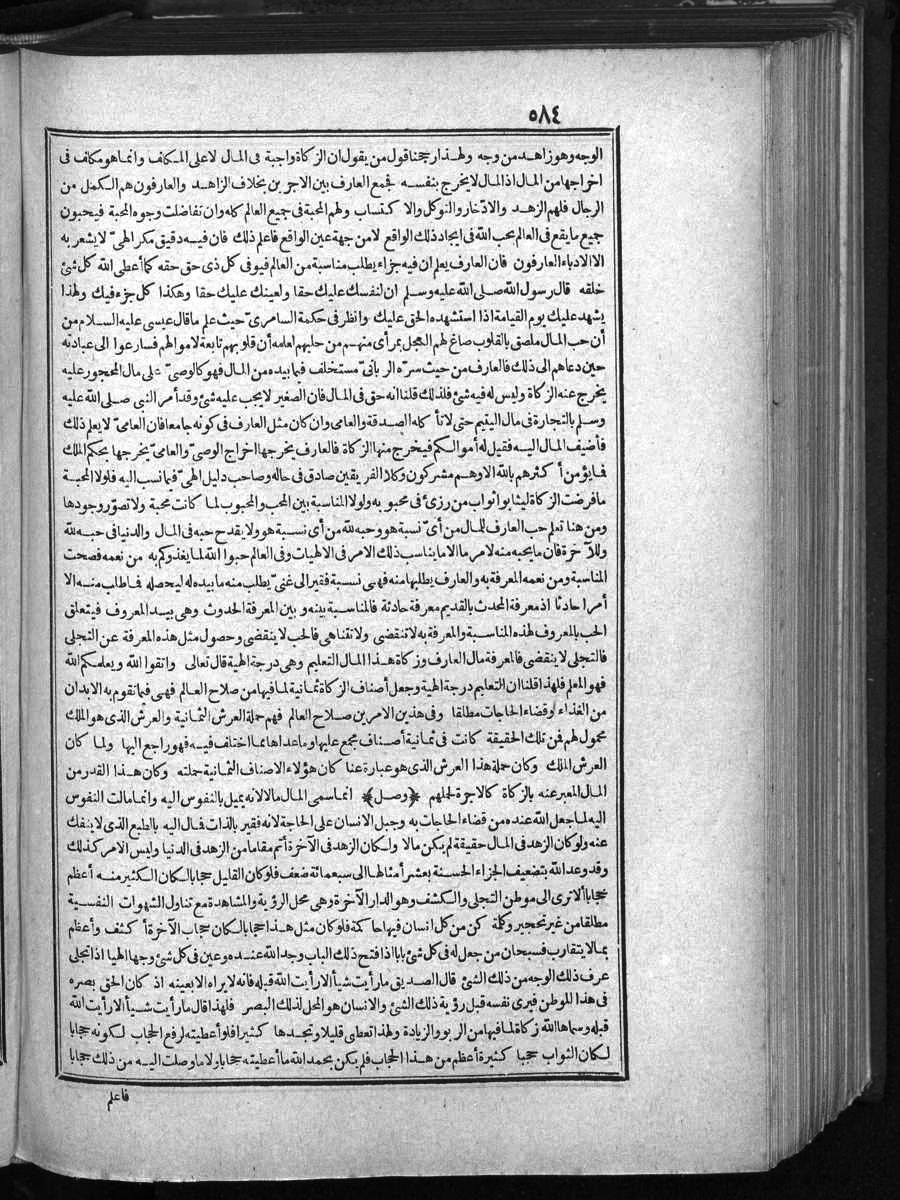 ٥٨٤
الوجه وهو زاهد من وجه ولهذا رجحنا قول من يقول ان الزكاة واجبة فى المال لا على المكلف وانما هو مكلف فى
اخراجها من المال اذ المال لا يخرج بنفسه فجمع العارف بين الاجرين بخلاف الزاهد والعارفون هم الكمل من
الرجال فلهم الزهد والادّخار والتوكل والاكتساب ولهم المحبة فى جميع العالم كله وان تفاضلت وجوه المحبة فيحبون
جميع ما يقع فى العالم بحب الله فى ايجاد ذلك الواقع لا من جهة عين الواقع فاعلم ذلك فان فيه دقيق مكر الهىّ لا يشعر به
الا الادباء العارفون فان العارف يعلم ان فيه جزأ يطلب مناسبة من العالم فيوفى كل ذى حق حقه كما أعطى الله كل شئ
خلقه قال رسول الله صلى الله عليه وسلم ان لنفسك عليك حقا ولعينك عليك حقا وهكذا كل جزء فيك ولهذا
يشهد عليك يوم القيامة اذا استشهده الحق عليك وانظر فى حكمة السامرىّ حيث علم ما قال عيسى عليه السلام من
أن حب المال ملصق بالقلوب صاغ لهم العجل بمرأى منهم من حليهم لعلمه أن قلوبهم تابعة لاموالهم فسارعوا الى عبادته
حين دعاهم الى ذلك فالعارف من حيث سرّه الربانىّ مستخلف فيما بيده من المال فهو كالوصىّ على مال المحجور عليه
يخرج عنه الزكاة وليس له فيه شئ فلذلك قلنا انه حق فى المال فان الصغير لا يجب عليه شئ وقد أمر النبى صلى الله عليه
وسلم بالتجارة فى مال اليتيم حتى لا تأكله الصدقة والعامى وان كان مثل العارف فى كونه جامعا فان العامىّ لا يعلم ذلك
فأضيف المال اليه فقيل له أموالكم فيخرج منها الزكاة فالعارف يخرجها اخراج الوصىّ والعامىّ يخرجها بحكم الملك
فما يؤمن أكثرهم بالله الا وهم مشركون وكلا الفريقين صادق فى حاله وصاحب دليل الهىّ فيما نسب اليه فلولا المحبة
ما فرضت الزكاة ليثابوا ثواب من رزئ فى محبوبه ولولا المناسبة بين المحب والمحبوب لما كانت محبة ولا تصوّر وجودها
ومن هنا تعلم حب العارف للمال من أىّ نسبة هو وحبه لله من أى نسبة هو ولا يقدح حبه فى المال والدنيا فى حبه لله
وللآخرة فان ما يحبه منه لامر ما الا ما يناسب ذلك الامر فى الالهيات وفى العالم حبوا الله لما يغذوكم به من نعمه فصحت
المناسبة ومن نعمه المعرفة به والعارف يطلبها منه فهى نسبة فقير الى غنىّ يطلب منه ما بيده له ليحصله فما طلب منه الا
أمرا حادثا اذ معرفة المحدث بالقديم معرفة حادثة فالمناسبة بينه وبين المعرفة الحدوث وهى بيد المعروف فيتعلق
الحب بالمعروف لهذه المناسبة والمعرفة به لا تنقضى ولا تتناهى فالحب لا ينقضى وحصول مثل هذه المعرفة عن التجلى
فالتجلى لا ينقضى فالمعرفة مال العارف وزكاة هذا المال التعليم وهى درجة الهية قال تعالى واتقوا الله ويعلمكم الله
فهو المعلم فلهذا قلنا ان التعليم درجة الهية وجعل أصناف الزكاة ثمانية لما فيها من صلاح العالم فهى فيما تقوم به الابدان
من الغذاء وقضاء الحاجات مطلقا وفى هذين الامرين صلاح العالم فهم حملة العرش الثمانية والعرش الذى هو الملك
محمول لهم فمن تلك الحقيقة كانت فى ثمانية أصناف مجمع عليها وما عداها مما اختلف فيه فهو راجع اليها ولما كان
العرش الملك وكان حملة هذا العرش الذى هو عبارة عنا كان هؤلاء الاصناف الثمانية حملته وكان هذا القدر من
المال المعبر عنه بالزكاة كالاجرة لحملهم ﴿وصل﴾ انما سمى المال مالا لانه يميل بالنفوس اليه وانما مالت النفوس
اليه لما جعل الله عنده من قضاء الحاجات به وجبل الانسان على الحاجة لانه فقير بالذات فمال اليه بالطبع الذى لا ينفك
عنه ولو كان الزهد فى المال حقيقة لم يكن مالا ولكان الزهد فى الآخرة أتم مقاما من الزهد فى الدنيا وليس الامر كذلك
وقد وعد الله بتضعيف الجزاء الحسنة بعشر أمثالها الى سبعمائة ضعف فلو كان القليل حجابا لكان الكثير منه أعظم
حجابا ألا ترى الى موطن التجلى والكشف وهو الدار الآخرة وهى محل الرؤية والمشاهدة مع تناول الشهوات النفسية
مطلقا من غير تحجير وكلمة كن من كل انسان فيها حاكمة فلو كان مثل هذا حجابا لكان حجاب الآخرة أكثف وأعظم
بما لا يتقارب فسبحان من جعل له فى كل شئ بابا اذا فتح ذلك الباب وجد الله عنده وعين فى كل شئ وجها الهيا اذا تجلى
عرف ذلك الوجه من ذلك الشئ قال الصديق ما رأيت شيأ الا رأيت الله قبله فانه لا يراه الا بعينه اذ كان الحق بصره
فى هذا الموطن فيرى نفسه قبل رؤية ذلك الشئ والانسان هو المحل لذلك البصر فلهذا قال ما رأيت شيأ الا رأيت الله
قبله وسماها الله زكاة لما فيها من الربو والزيادة ولهذا تعطى قليلا وتجدها كثيرا فلو أعطيته لرفع الحجاب لكونه حجابا
لكان الثواب حجبا كثيرة أعظم من هذا الحجاب فلم يكن بحمد الله ما أعطيته حجابا ولا ما وصلت اليه من ذلك حجابا
فاعلم